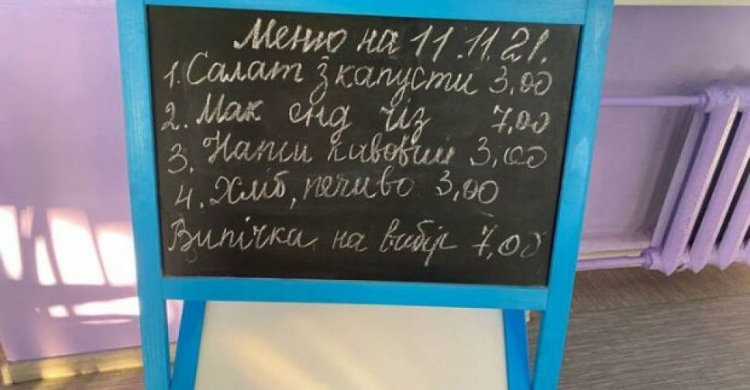 Меню на 11.11.21.
1. Салат з капусти 3,00
2. Мак енд чіз 7,00
3. Напій кавовий 3,00
4. Хліб, печиво 3,00
Випічка на вибір 7,00